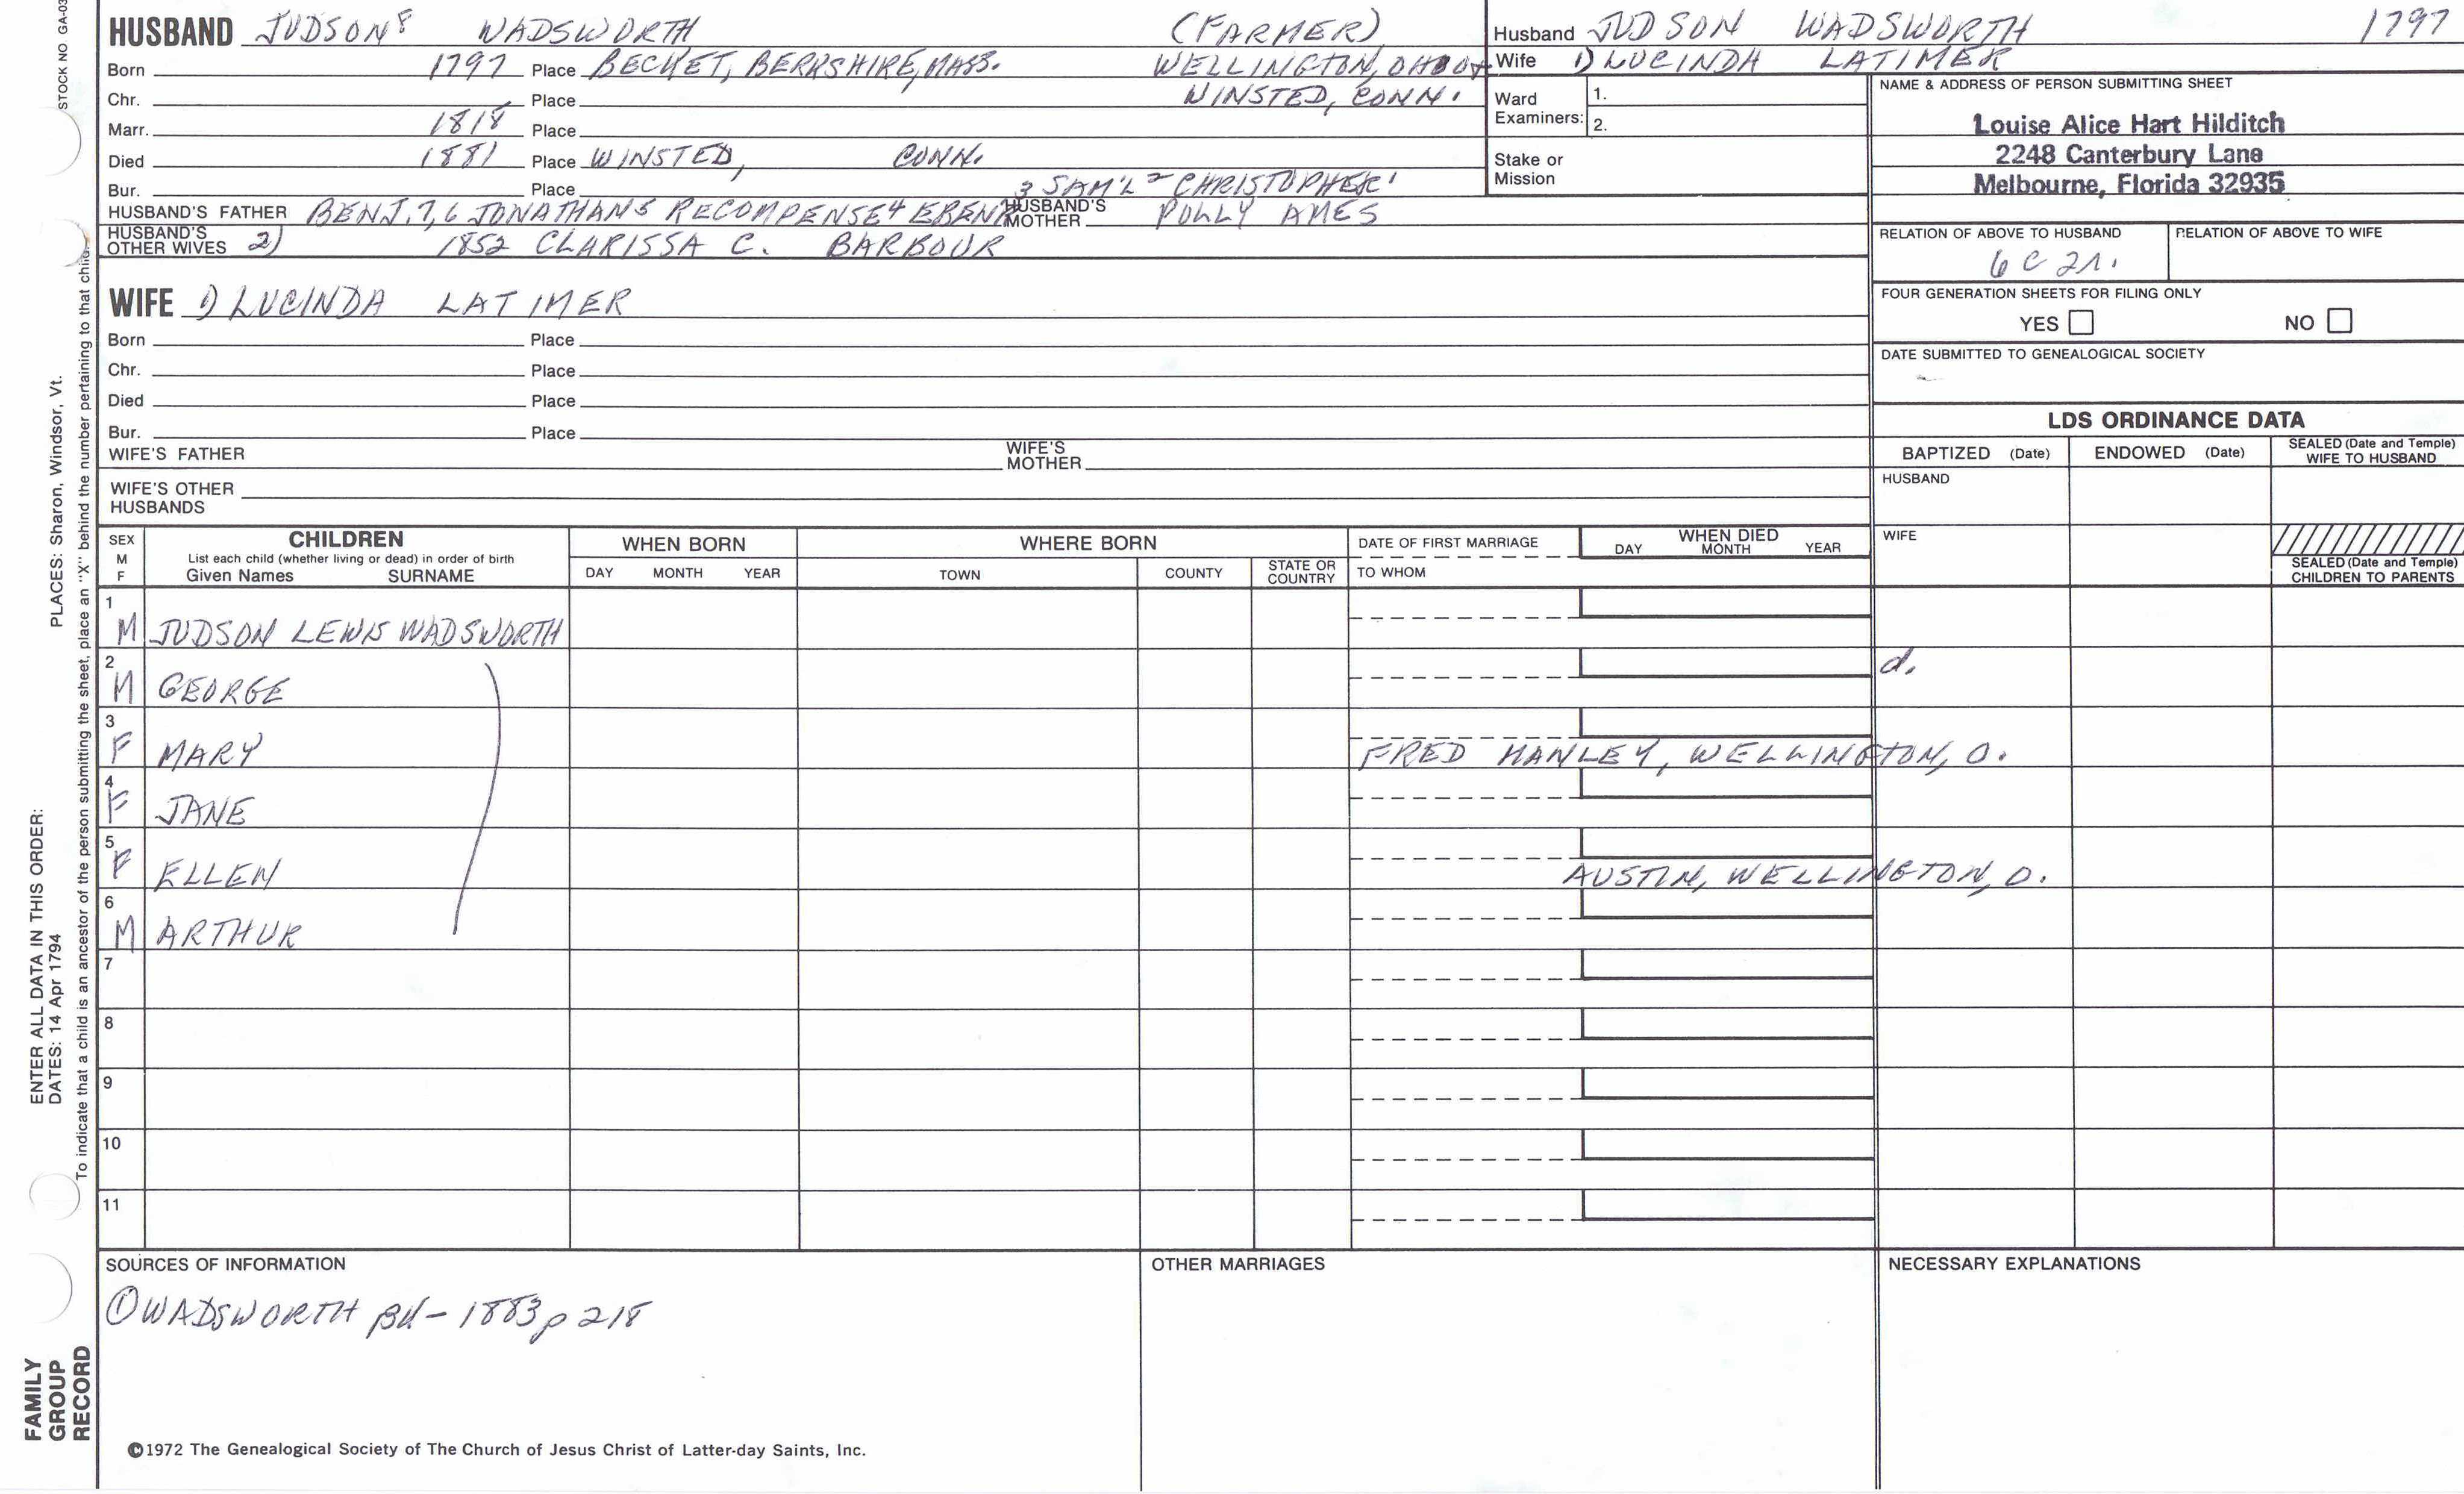 STOCK NO GA-03
HUSBAND JUDSON⁸ WADSWORTH (FARMER)
Born 1797 Place BECKET, BERKSHIRE, MASS. WELLINGTON, OHIO &
Chr. Place WINSTED, CONN.
Marr. 1818 Place
Died 1881 Place WINSTED, CONN.
Bur. Place 3 SAM'L 2 CHRISTOPHER 1
HUSBAND'S FATHER BENJ. 7, 6 JONATHAN 5 RECOMPENSE 4 HUSBAND'S MOTHER POLLY AMES
HUSBAND'S OTHER WIVES 2) 1852 CLARISSA C. BARBOUR
WIFE 1) LUCINDA LATIMER
Born Place
Chr. Place
Died Place
Bur. Place
WIFE'S FATHER WIFE'S MOTHER
WIFE'S OTHER HUSBANDS
Husband JUDSON WADSWORTH 1797
Wife 1) LUCINDA LATIMER
Ward Examiners: 1.
2.
Stake or Mission
NAME & ADDRESS OF PERSON SUBMITTING SHEET
Louise Alice Hart Hilditch
2248 Canterbury Lane
Melbourne, Florida 32935
RELATION OF ABOVE TO HUSBAND RELATION OF ABOVE TO WIFE
6 C 2r.
FOUR GENERATION SHEETS FOR FILING ONLY
YES NO
DATE SUBMITTED TO GENEALOGICAL SOCIETY
LDS ORDINANCE DATA
BAPTIZED (Date) ENDOWED (Date) SEALED (Date and Temple) WIFE TO HUSBAND
HUSBAND
WIFE
SEALED (Date and Temple) CHILDREN TO PARENTS
SEX M F CHILDREN WHEN BORN WHERE BORN DATE OF FIRST MARRIAGE WHEN DIED
List each child (whether living or dead) in order of birth
Given Names SURNAME DAY MONTH YEAR TOWN COUNTY STATE OR COUNTRY TO WHOM DAY MONTH YEAR
1 M JUDSON LEWIS WADSWORTH
2 M GEORGE d.
3 F MARY FRED HANLEY, WELLINGTON, O.
4 F JANE
5 F ELLEN AUSTIN, WELLINGTON, O.
6 M ARTHUR
7
8
9
10
11
SOURCES OF INFORMATION OTHER MARRIAGES NECESSARY EXPLANATIONS
① WADSWORTH BK - 1883 p 218
©1972 The Genealogical Society of The Church of Jesus Christ of Latter-day Saints, Inc.
FAMILY
GROUP
RECORD
ENTER ALL DATA IN THIS ORDER:
DATES: 14 Apr 1794 PLACES: Sharon, Windsor, Vt.
To indicate that a child is an ancestor of the person submitting the sheet, place an "X" behind the number pertaining to that child.